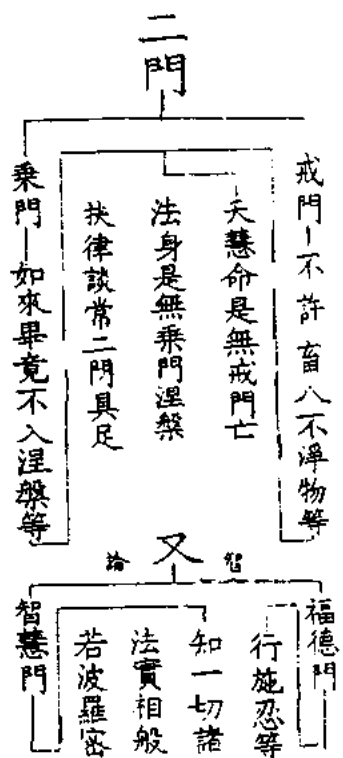 二門
戒門 不許畜八不淨物等
夭慧命是無戒門亡
法身是無乗門涅槃
扶律談常二門具足
乗門 如來畢竟不入涅槃等
又
智
論
福德門
行施忍等
知一切諸
法實相般
若波羅密
智慧門